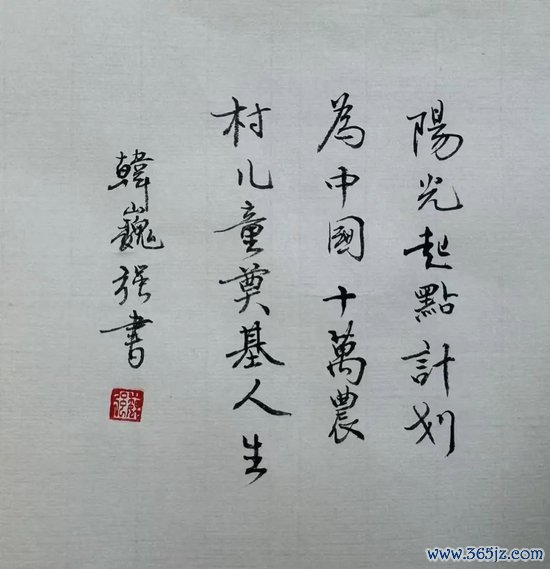 陽光起點計划
為中國十萬農
村儿童奠基人生
韓巍强書
www.365jz.com